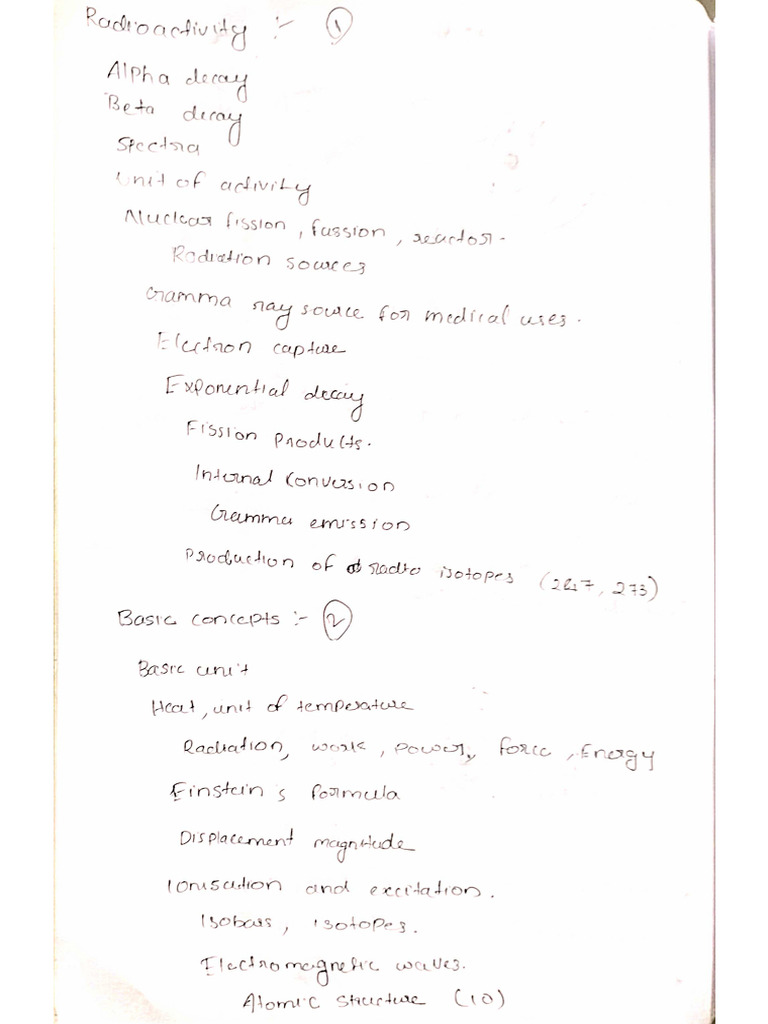 Radioactivity :- 1
Alpha decay
Beta decay
Spectra
Unit of activity
Nuclear fission, fussion, reactor.
Radiation sources
Gamma ray source for medical uses.
Electron capture
Exponential decay
Fission products.
Internal conversion
Gamma emission
Production of radio isotopes (247, 273)
Basic concepts :- 2
Basic unit
Heat, unit of temperature
Radiation, work, power, force, Energy
Einstein's formula
Displacement magnitude
Ionisation and excitation.
Isobars, isotopes.
Electromagnetic waves.
Atomic structure (10)